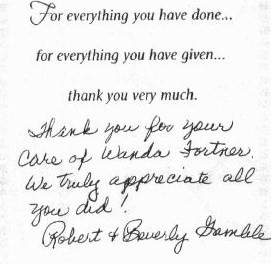 For everything you have done...
for everything you have given...
thank you very much.
Thank you for your
care of Wanda Fortner.
We truly appreciate all
you did!
Robert & Beverly Gamble